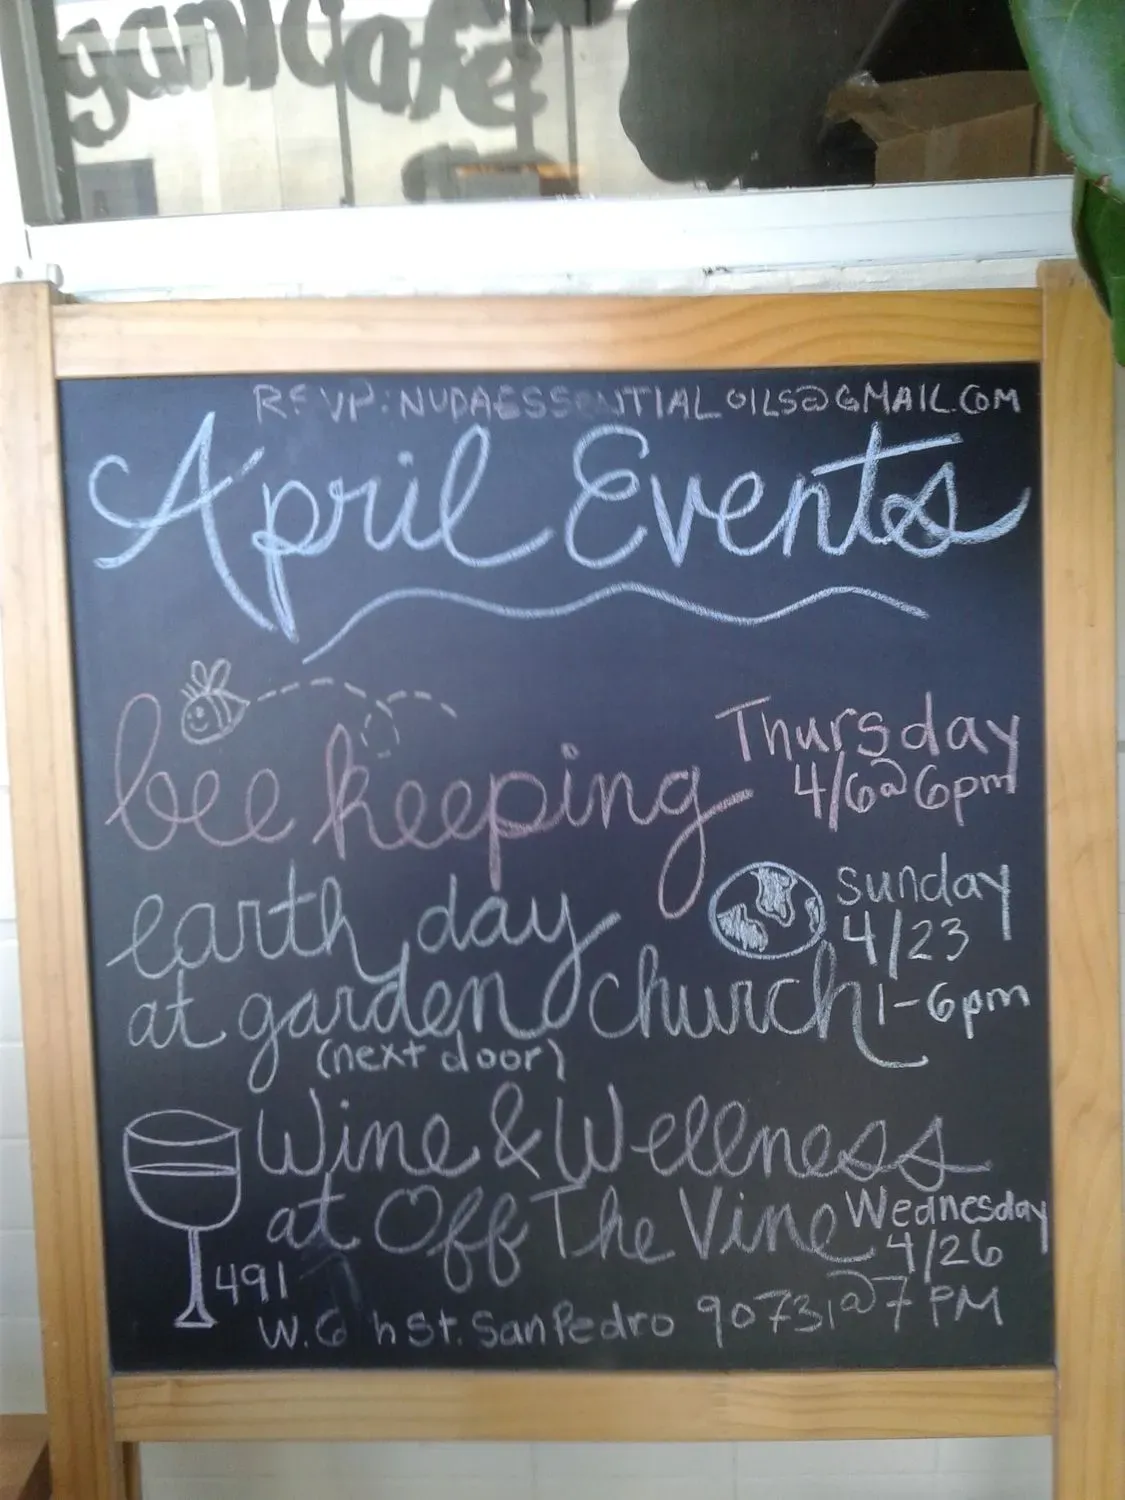 ganic Cafe
RSVP: NUDAESSENTIALOILS@GMAIL.COM
April Events
bee keeping
Thursday
4/6@6pm
earth day
at garden church
(next door)
Sunday
4/23
1-6pm
Wine & Wellness
at Off The Vine
Wednesday
4/26
@7PM
491
W. 6th St. San Pedro 90731